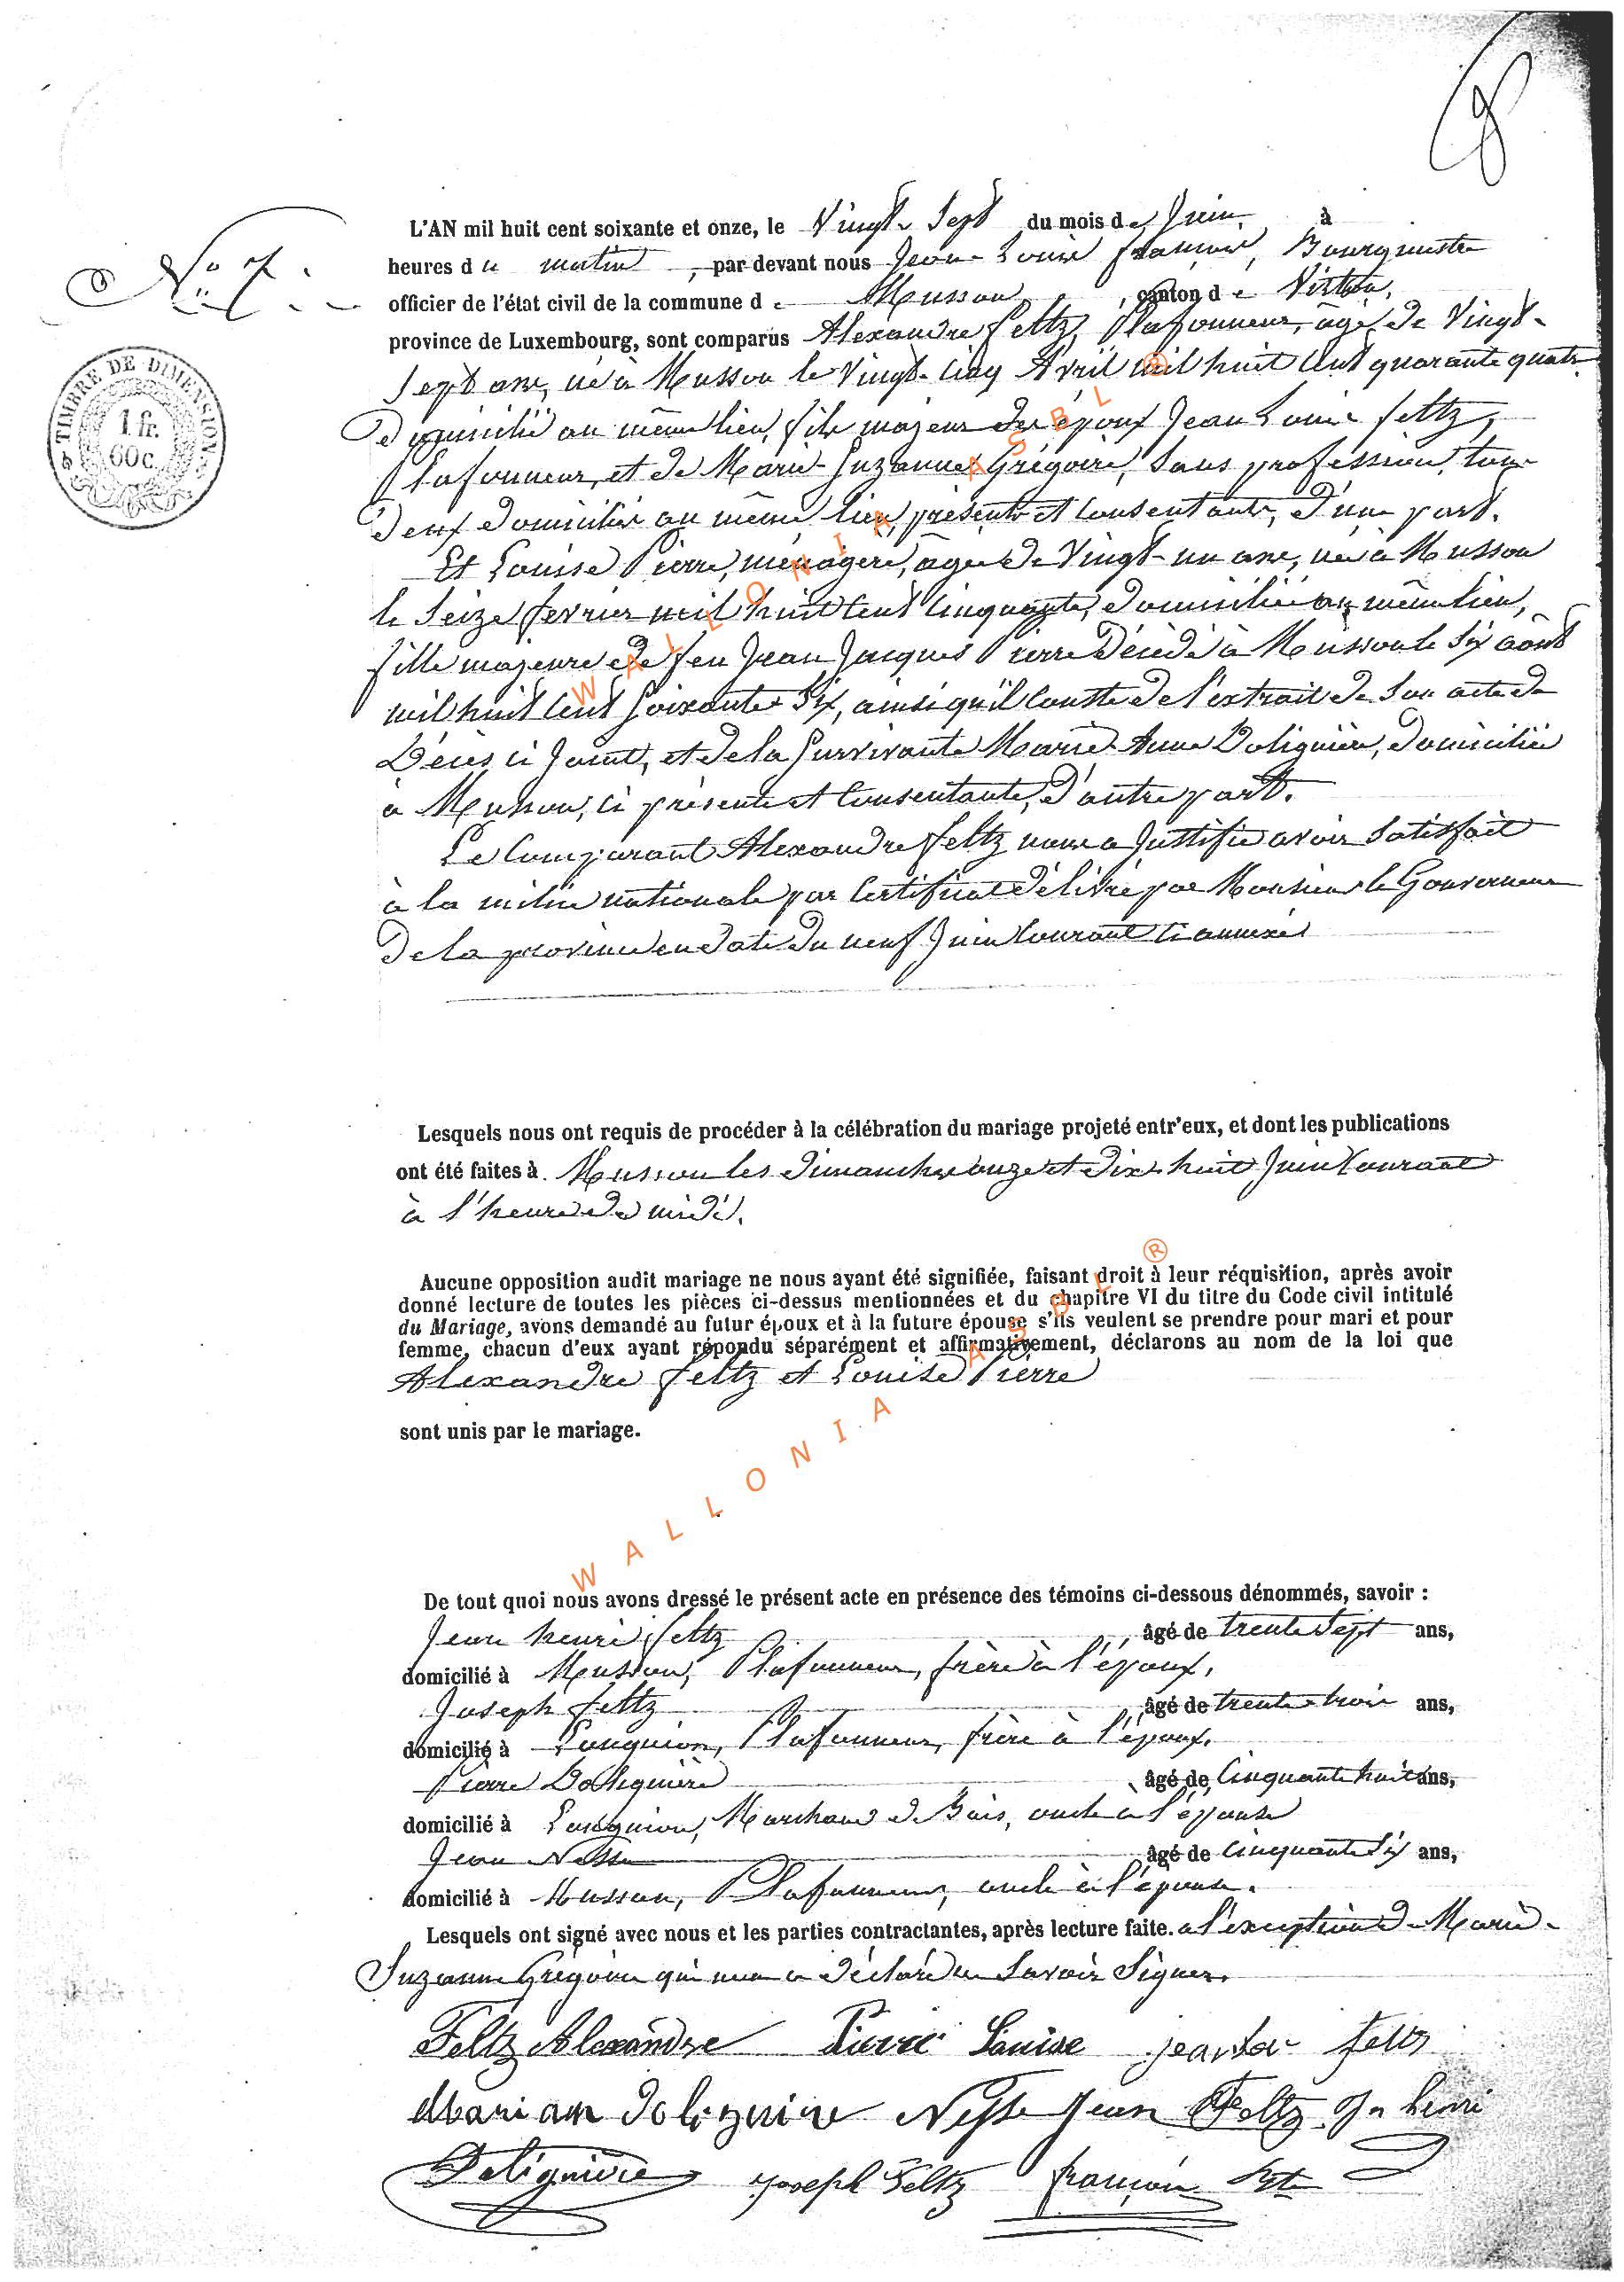 8
N° 7.
TIMBRE DE DIMENSION
1 fr.
60 c.
L'AN mil huit cent soixante et onze, le Vingt Sept du mois de Juin à
heures du matin, par devant nous Jean Louis François, Bourgmestre
officier de l'état civil de la commune de Musson, canton de Virton,
province de Luxembourg, sont comparus Alexandre Feltz, Plafonneur, âgé de Vingt-
Sept ans, né à Musson le Vingt-Cinq Avril mil huit Cent quarante quatre
domicilié au même lieu, fils majeur des époux Jean Louis Feltz,
Plafonneur, et de Marie-Suzanne Grégoire, Sans profession, tous
deux domiciliés au même lieu, présents et Consentants, d'une part.
Et Louise Pierre, ménagère, âgée de Vingt-un ans, née à Musson
le Seize fevrier mil huit Cent Cinquante, domiciliée au même lieu,
fille majeure de feu Jean Jacques Pierre Décédé à Musson le Six août
mil huit Cent Soixante Six, ainsi qu'il Conste de l'extrait de Son acte de
Décès ci Joint, et de la Survivante Marie-Anne Doliguière, domiciliée
à Musson, ci présente et Consentante, d'autre part.
Le Comparant Alexandre Feltz nous a Justifié avoir Satisfait
à la milice nationale par Certificat délivré par Monsieur le Gouverneur
de la province en date du neuf Juin Courant ci annexé
Lesquels nous ont requis de procéder à la célébration du mariage projeté entr'eux, et dont les publications
ont été faites à Musson les dimanches onze et dix-huit Juin Courant
à l'heure de midi.
Aucune opposition audit mariage ne nous ayant été signifiée, faisant droit à leur réquisition, après avoir
donné lecture de toutes les pièces ci-dessus mentionnées et du chapitre VI du titre du Code civil intitulé
du Mariage, avons demandé au futur époux et à la future épouse s'ils veulent se prendre pour mari et pour
femme, chacun d'eux ayant répondu séparément et affirmativement, déclarons au nom de la loi que
Alexandre Feltz et Louise Pierre
sont unis par le mariage.
WALLONIA ASBL ®
WALLONIA ASBL ®
De tout quoi nous avons dressé le présent acte en présence des témoins ci-dessous dénommés, savoir :
Jean henri Feltz âgé de trente Sept ans,
domicilié à Musson, Plafonneur, frère à l'époux.
Joseph Feltz âgé de trente trois ans,
domicilié à Longuion, Plafonneur, frère à l'époux.
Pierre Doliguière âgé de Cinquante huit ans,
domicilié à Longuion, Marchand de Bois, oncle à l'épouse
Jean Nesse âgé de Cinquante Six ans,
domicilié à Musson, Plafonneur, oncle à l'épouse.
Lesquels ont signé avec nous et les parties contractantes, après lecture faite. a l'exception de Marie-
Suzanne Grégoire qui nous a déclaré ne Savoir Signer.
Feltz Alexandre Pierre Louise jean Feltz
Marian doliguire Nesse Jean Feltz Jn henri
Doliguière joseph Feltz françois